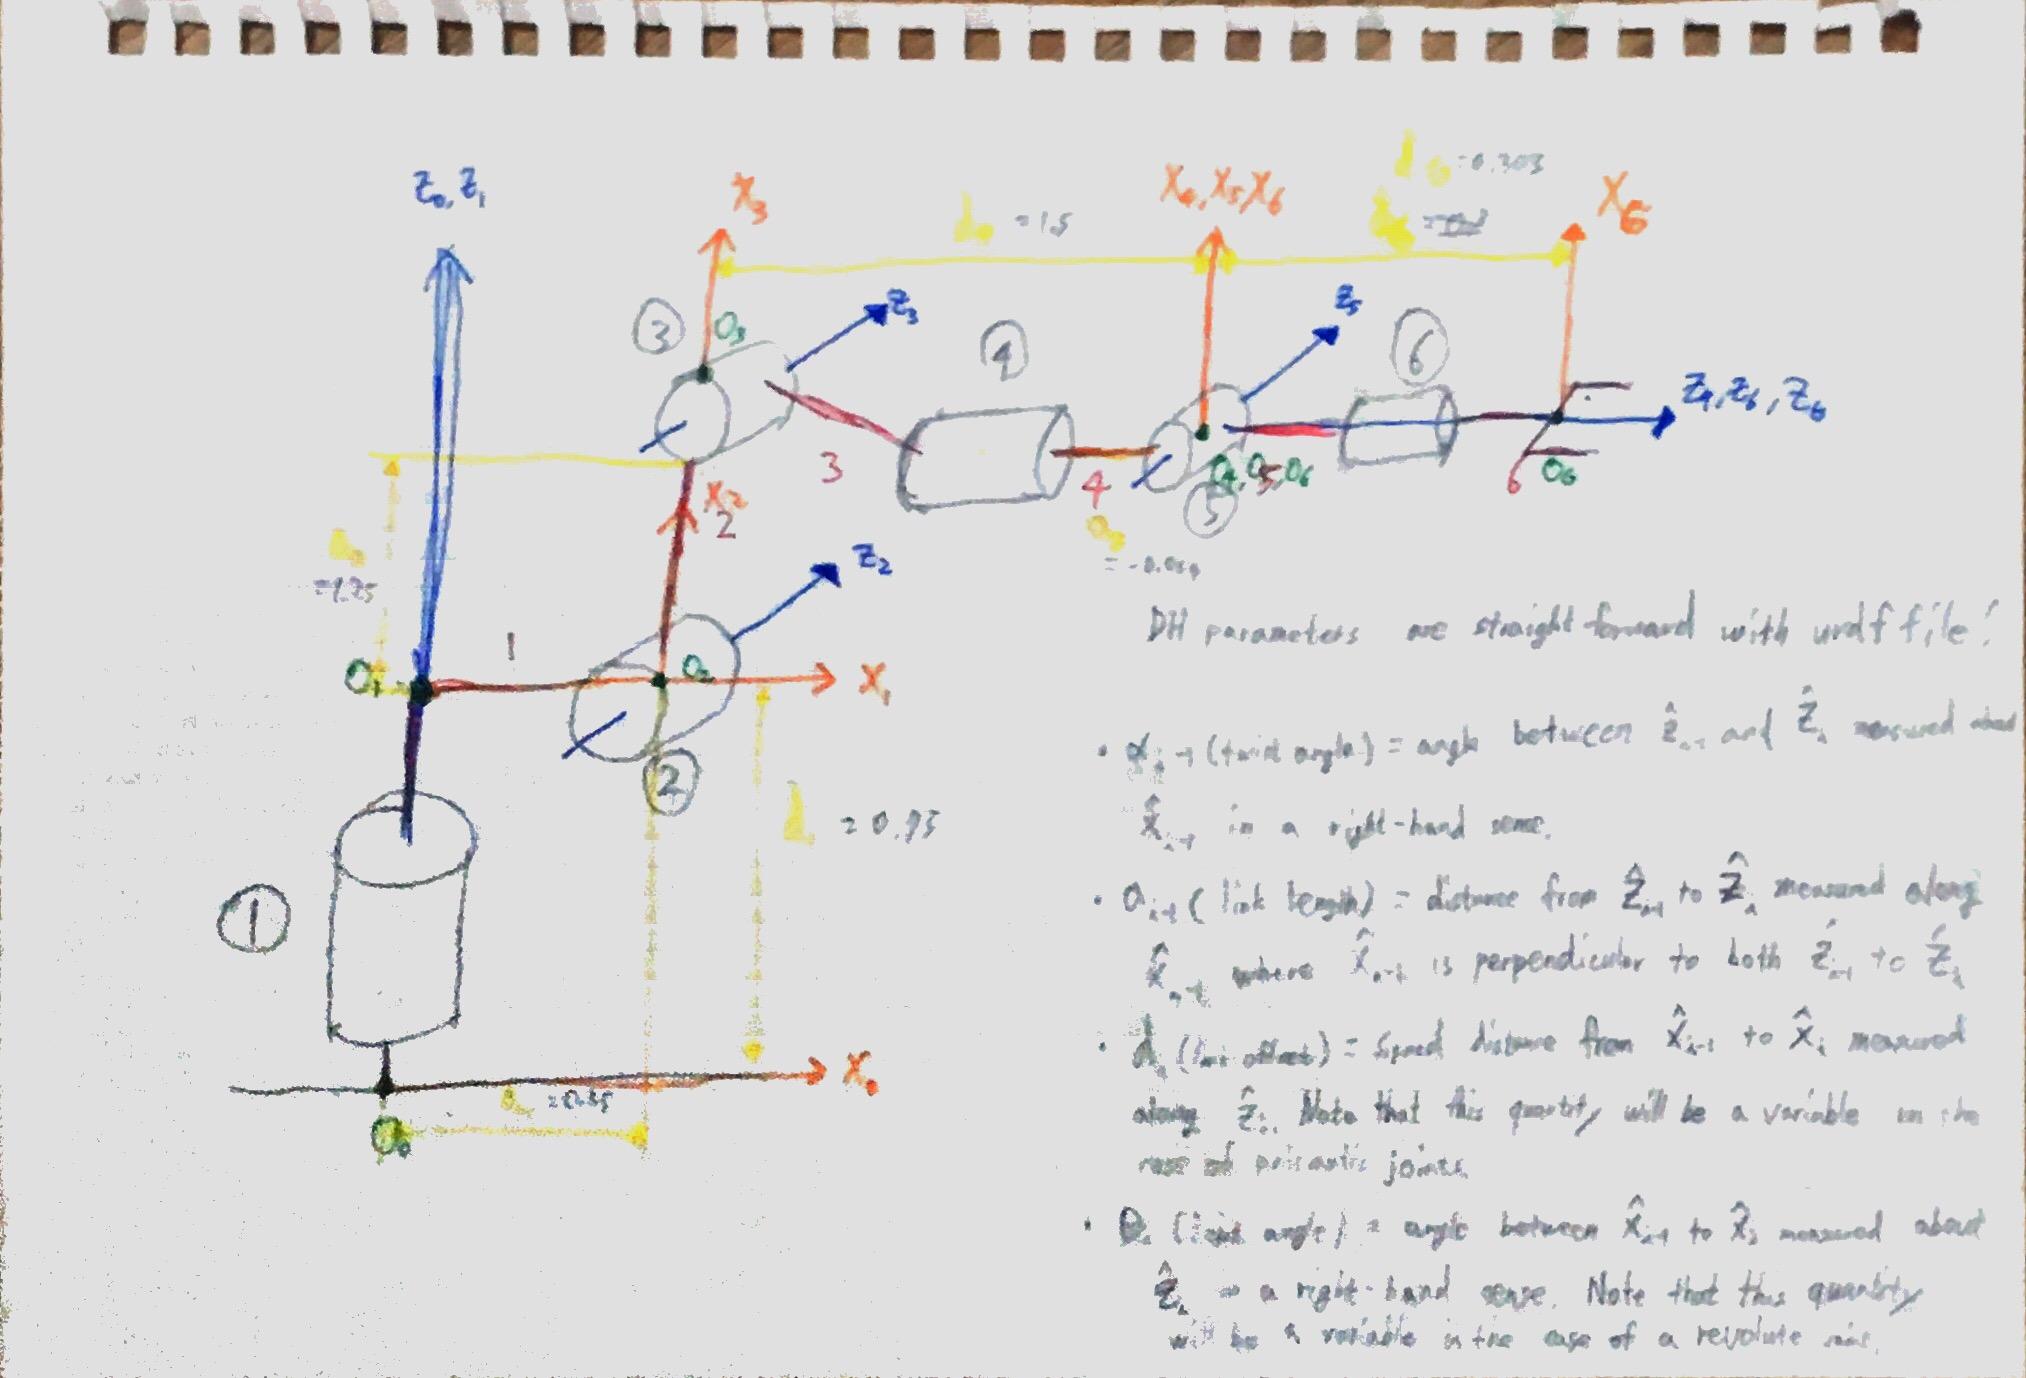 Z₀, Z₁
X₃
d₄ = 1.5
X₄, X₅, X₆
d₆ = 0.303
X₆
3
O₃
Z₃
4
Z₅
6
Z₄, Z₆, Z₆
3
4
O₄, O₅, O₆
5
6
O₆
X₂
2
a₂
= 1.25
a₃
= -0.054
Z₂
1
O₁
O₂
X₁
2
d₁ = 0.75
1
X₀
a₁ = 0.35
O₀
DH parameters are straight forward with urdf file!
• αᵢ₋₁ (twist angle) = angle between ẑᵢ₋₁ and ẑᵢ measured about
x̂ᵢ₋₁ in a right-hand sense.
• aᵢ₋₁ (link length) = distance from ẑᵢ₋₁ to ẑᵢ measured along
x̂ᵢ₋₁ where x̂ᵢ₋₁ is perpendicular to both ẑᵢ₋₁ to ẑᵢ
• dᵢ (link offset) = signed distance from x̂ᵢ₋₁ to x̂ᵢ measured
along ẑᵢ. Note that this quantity will be a variable in the
case of prismatic joints.
• θᵢ (joint angle) = angle between x̂ᵢ₋₁ to x̂ᵢ measured about
ẑᵢ in a right-hand sense. Note that this quantity
will be a variable in the case of a revolute